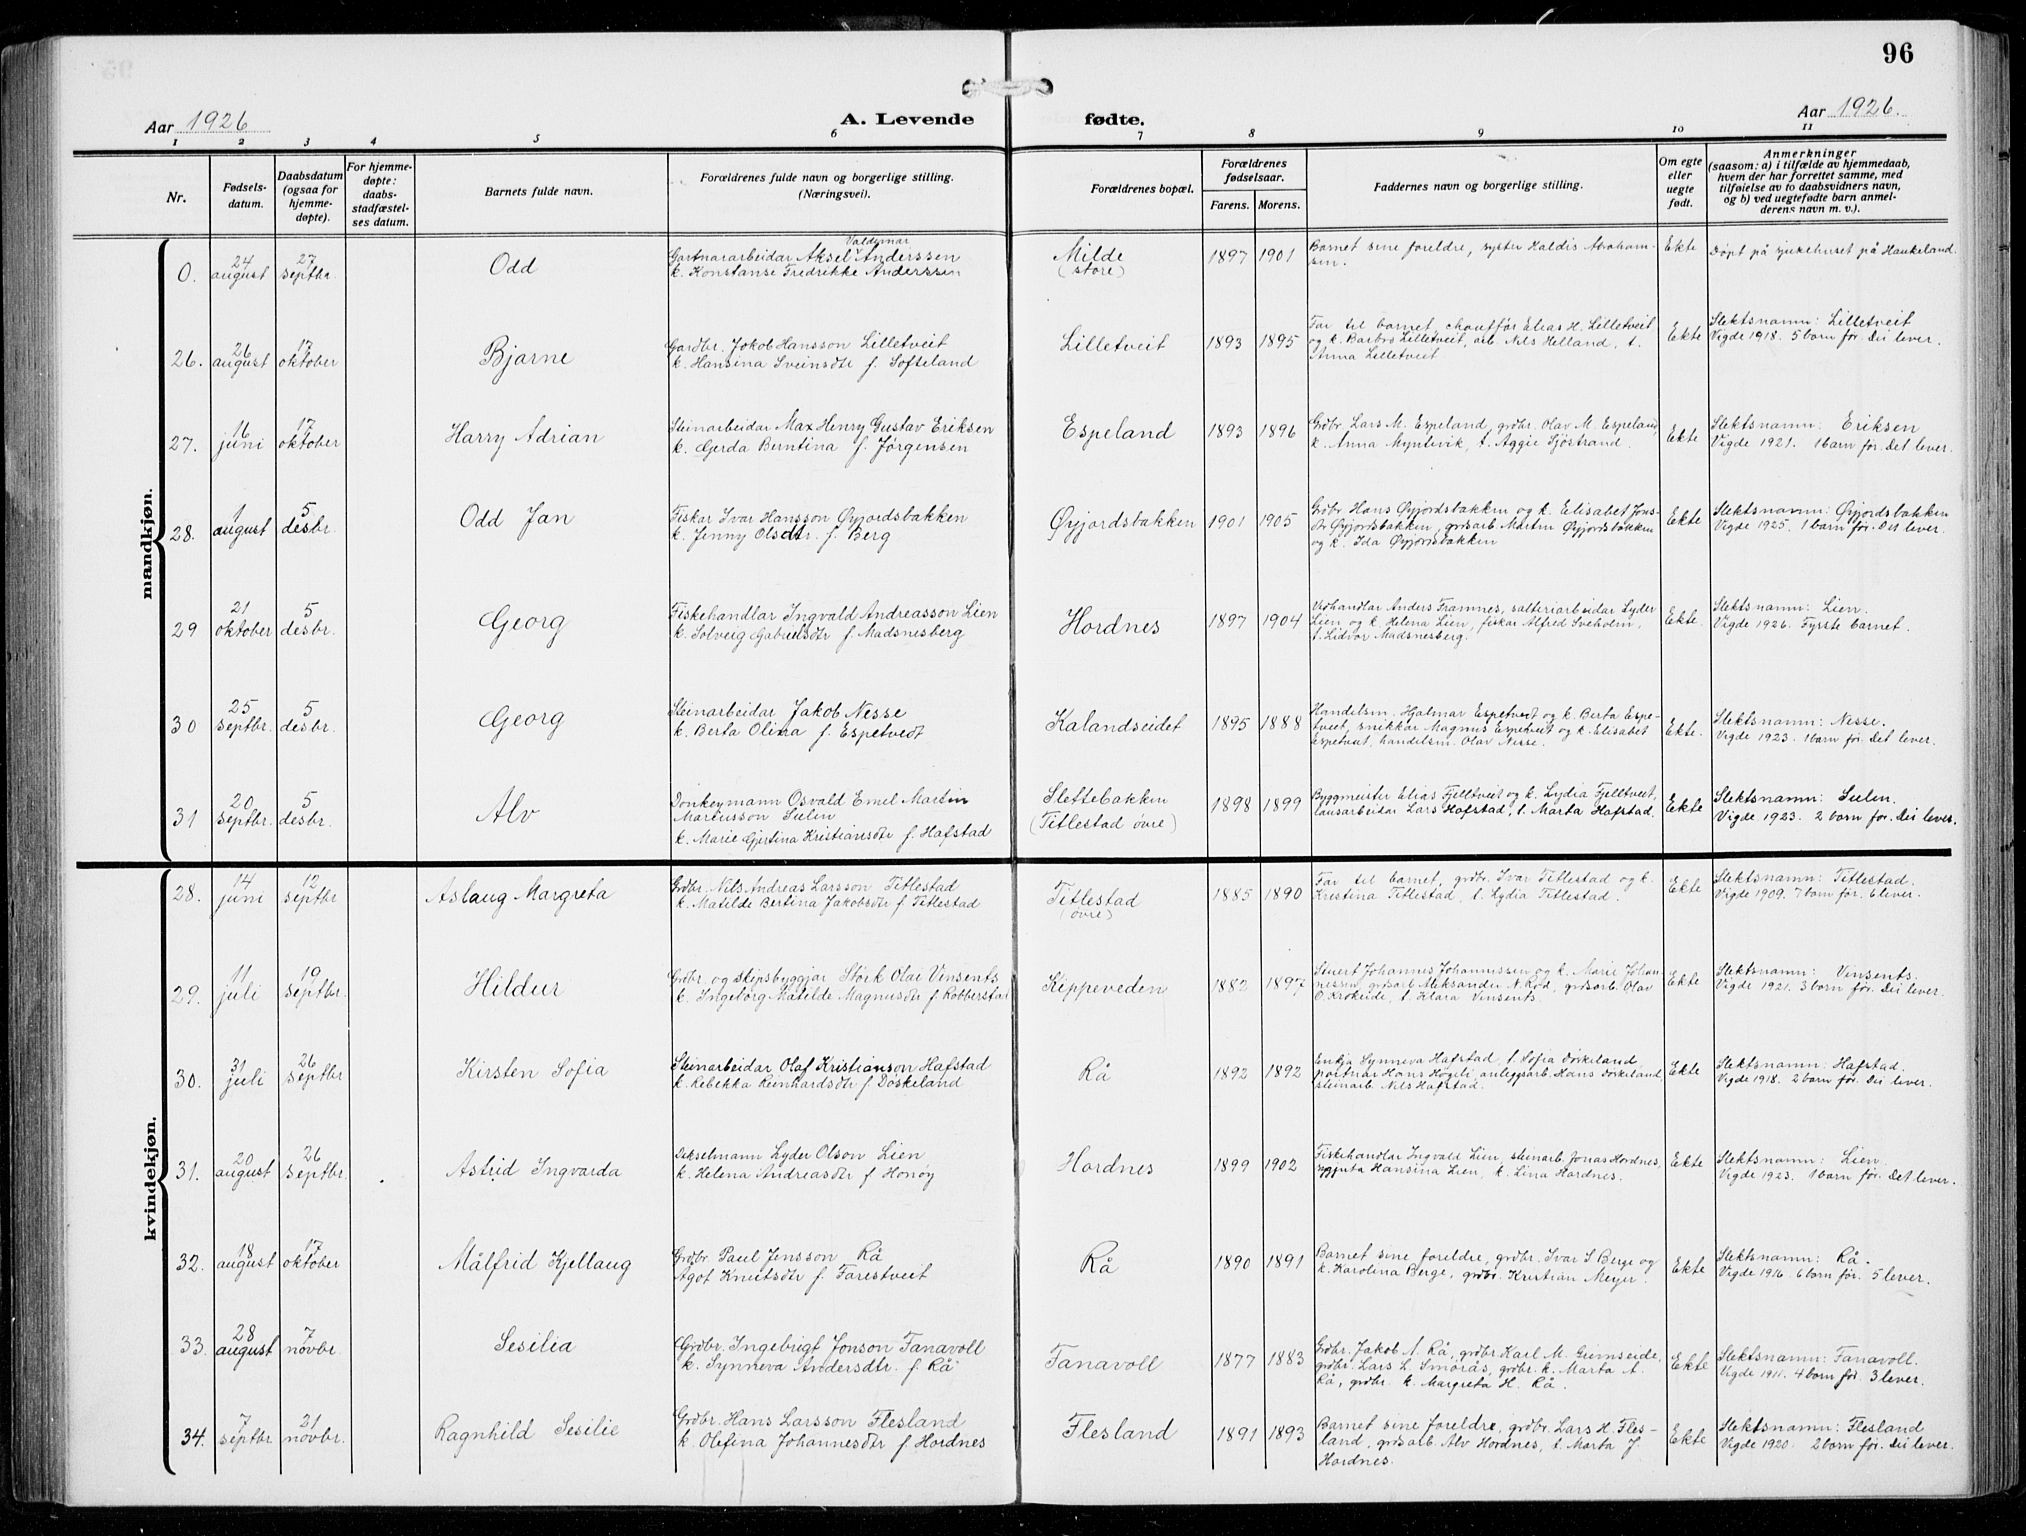 96
Aar 1926
A. Levende
fødte.
Aar 1926.
1 2 3 4 5 6 7 8 9 10 11
Nr.
Fødsels-
datum.
Daabsdatum
(ogsaa for
hjemme-
døpte).
For hjemme-
døpte:
daabs-
stadfæstel-
ses datum.
Barnets fulde navn.
Forældrenes fulde navn og borgerlige stilling.
(Næringsvei).
Forældrenes bopæl.
Forældrenes
fødselsaar.
Farens. Morens.
Faddernes navn og borgerlige stilling.
Om egte
eller
uegte
født.
Anmerkninger
(saasom: a) i tilfælde av hjemmedaab,
hvem der har forrettet samme, med
tilføielse av to daabsvidners navn,
og b) ved uegtefødte barn anmel-
derens navn m. v.).
mandkjøn.
0. 24 august 27 septbr. Odd
Gartnararbeidar Aksel Valdemar Anderssen
k. Konstanse Fredrikke Anderssen
Milde
(store)
1897 1901
Barnet sine foreldre, syster Haldis Abraham-
sen.
Ekte
Døpt på sjukehuset på Haukeland.
26. 26 august 17 oktober Bjarne
Gardbr. Jakob Hansson Lilletveit
k. Hansina Sveinsdtr f. Softeland
Lilletveit
1893 1895
Far til barnet, chaufför Elias H. Lilletveit
og k. Barbro Lilletveit, arb. Nils Helland, t.
Anna Lilletveit
Ekte
Slektsnamn: Lilletveit
Vigde 1918. 5 born før. Dei lever.
27. 16 juni 17 oktober Harry Adrian
Steinarbeidar Max Henry Gustav Eriksen
k. Gerda Berntina f. Jørgensen
Espeland
1893 1896
Grdbr. Lars M. Espeland, grdbr. Olav M. Espeland,
k. Anna Myntevik, t. Aggie Sjöstrand.
Ekte
Slektsnamn: Eriksen
Vigde 1921. 1 barn før. Det lever.
28. 1 august 5 desbr. Odd Jan
Fiskar Ivar Hansson Øyjordsbakken
k. Jenny Olsdtr. f. Berg
Øyjordsbakken
1901 1905
Grdbr Hans Øyjordsbakken og k. Elisabet Jons-
dtr Øyjordsbakken, grdsarb. Martin Øyjordsbakken
og k. Ida Øyjordsbakken
Ekte
Slektsnamn: Øyjordsbakken
Vigde 1925. 1 barn før. Det lever.
29 21 oktober 5 desbr. Georg
Fiskehandlar Ingvald Andreasson Lien
k. Solveig Gabrielsdtr f. Madsnesberg
Hordnes
1897 1904
Vedhandlar Anders Framnes, salteriarbeidar Lyder
Lien og k. Helena Lien, fiskar Alfred Sveholm,
t. Lidvor Madsnesberg.
Ekte.
Slektsnamn: Lien.
Vigde 1926. Fyrste barnet.
30 25 septbr. 5 desbr. Georg
Steinarbeidar Jakob Nesse
k. Berta Olina f. Espetvedt
Kalandseidet
1895 1888
Handelsm. Hjalmar Espetvedt og k. Berta Espe-
tveit, snikkar Magnus Espetveit og k. Elisabet
Espetveit, handelsm. Olav Nesse.
Ekte.
Slektsnamn: Nesse.
Vigde 1923. 1 barn før. Det lever.
31 20 septbr. 5 desbr. Alv
Donkeymann Osvald Emel Martin
Martinsson Sulen
k. Marie Gjertina Kristiansdtr f. Hafstad
Slettebakken
(Titlestad övre)
1898 1899
Byggmeister Elias Fjelltveit og k. Lydia Fjelltveit,
lausarbeidar Lars Hafstad, t. Marta Hafstad.
Ekte
Slektsnamn: Sulen.
Vigde 1923. 2 born før. Dei lever.
kvindekjøn.
28. 14 juni 12 septbr Aslaug Margreta
Grdbr. Nils Andreas Larsson Titlestad
k. Matilde Bertina Jakobsdtr f. Titlestad
Titlestad
(övre)
1885 1890
Far til barnet, grdbr. Ivar Titlestad og k.
Kristina Titlestad, t. Lydia Titlestad.
Ekte
Slektsnamn: Titlestad.
Vigde 1909. 7 born før. 6 lever.
29. 11 juli 19 septbr. Hildur
Grdbr. og skipsbyggjar Størk Olai Vinsents
k. Ingebörg Matilde Magnusdtr f. Robberstad
Kippeveden
1882 1897
Severt Johannes Johannessen og k. Marie Johan-
nessen, grdsarb Aleksander N. Rød, grdsarb. Olav
O. Krokeide, t. Klara Vinsents.
Ekte
Slektsnamn: Vinsents.
Vigde 1921. 3 born før. Dei lever.
30. 31 juli 26 septbr Kirsten Sofia
Steinarbeidar Olaf Kristianson Hafstad
k. Rebekka Reinhardsdtr f. Døskeland
Rå
1892 1892
Enkja Synneva Hafstad, t. Sofia Døskeland,
portnar Hans Høgeli, anleggsarb. Hans Døskeland
steinarb. Nils Hafstad.
Ekte
Slektsnamn: Hafstad.
Vigde 1918. 2 born før. Dei lever.
31. 20 august 26 septbr. Astrid Ingvarda
Dekselmann Lyder Olson Lien
k. Helena Andreasdtr f. Honøy
Hordnes
1899 1902
Fiskehandlar Ingvald Lien, steinarb. Jonas Hordnes,
Hansina Lien, k. Lina Hordnes.
Ekte
Slektsnamn: Lien.
Vigde 1923. 1 barn før. Det lever.
32. 18 august 17 oktober Målfrid Kjellaug
Grdbr. Paul Jensson Rå
Agot Knutsdtr f. Farestveit
Rå
1890 1891
Barnet sine foreldre, grdbr. Ivar S Berge og
k. Karolina Berge, grdbr. Kristian Meyer.
Ekte
Slektsnamn: Rå.
Vigde 1916. 6 born før. 5 lever.
33. 28 august 7 novbr. Sesilia
Grdbr. Ingebrigt Jonson Fanavoll
k. Synneva Andersdtr. f. Rå
Fanavoll
1877 1883
Grdbr. Jakob A. Rå, grdbr Karl M. Grimseide,
grdbr. Lars L. Smörås, grdbr. k. Marta A.
Rå, grdbr. k. Margreta H. Rå.
Ekte
Slektsnamn: Fanavoll.
Vigde 1911. 4 born før. 3 lever.
34. 7 septbr 21 novbr. Ragnhild Sesilie
Grdbr. Hans Larsson Flesland
k. Olefina Johannesdtr f. Hordnes
Flesland
1891 1893
Barnet sine foreldre, grdbr. Lars H. Fles-
land, grdsarb. Alv Hordnes, t. Marta J.
Hordnes.
Ekte
Slektsnamn: Flesland
Vigde 1920. 2 born før. Dei lever.